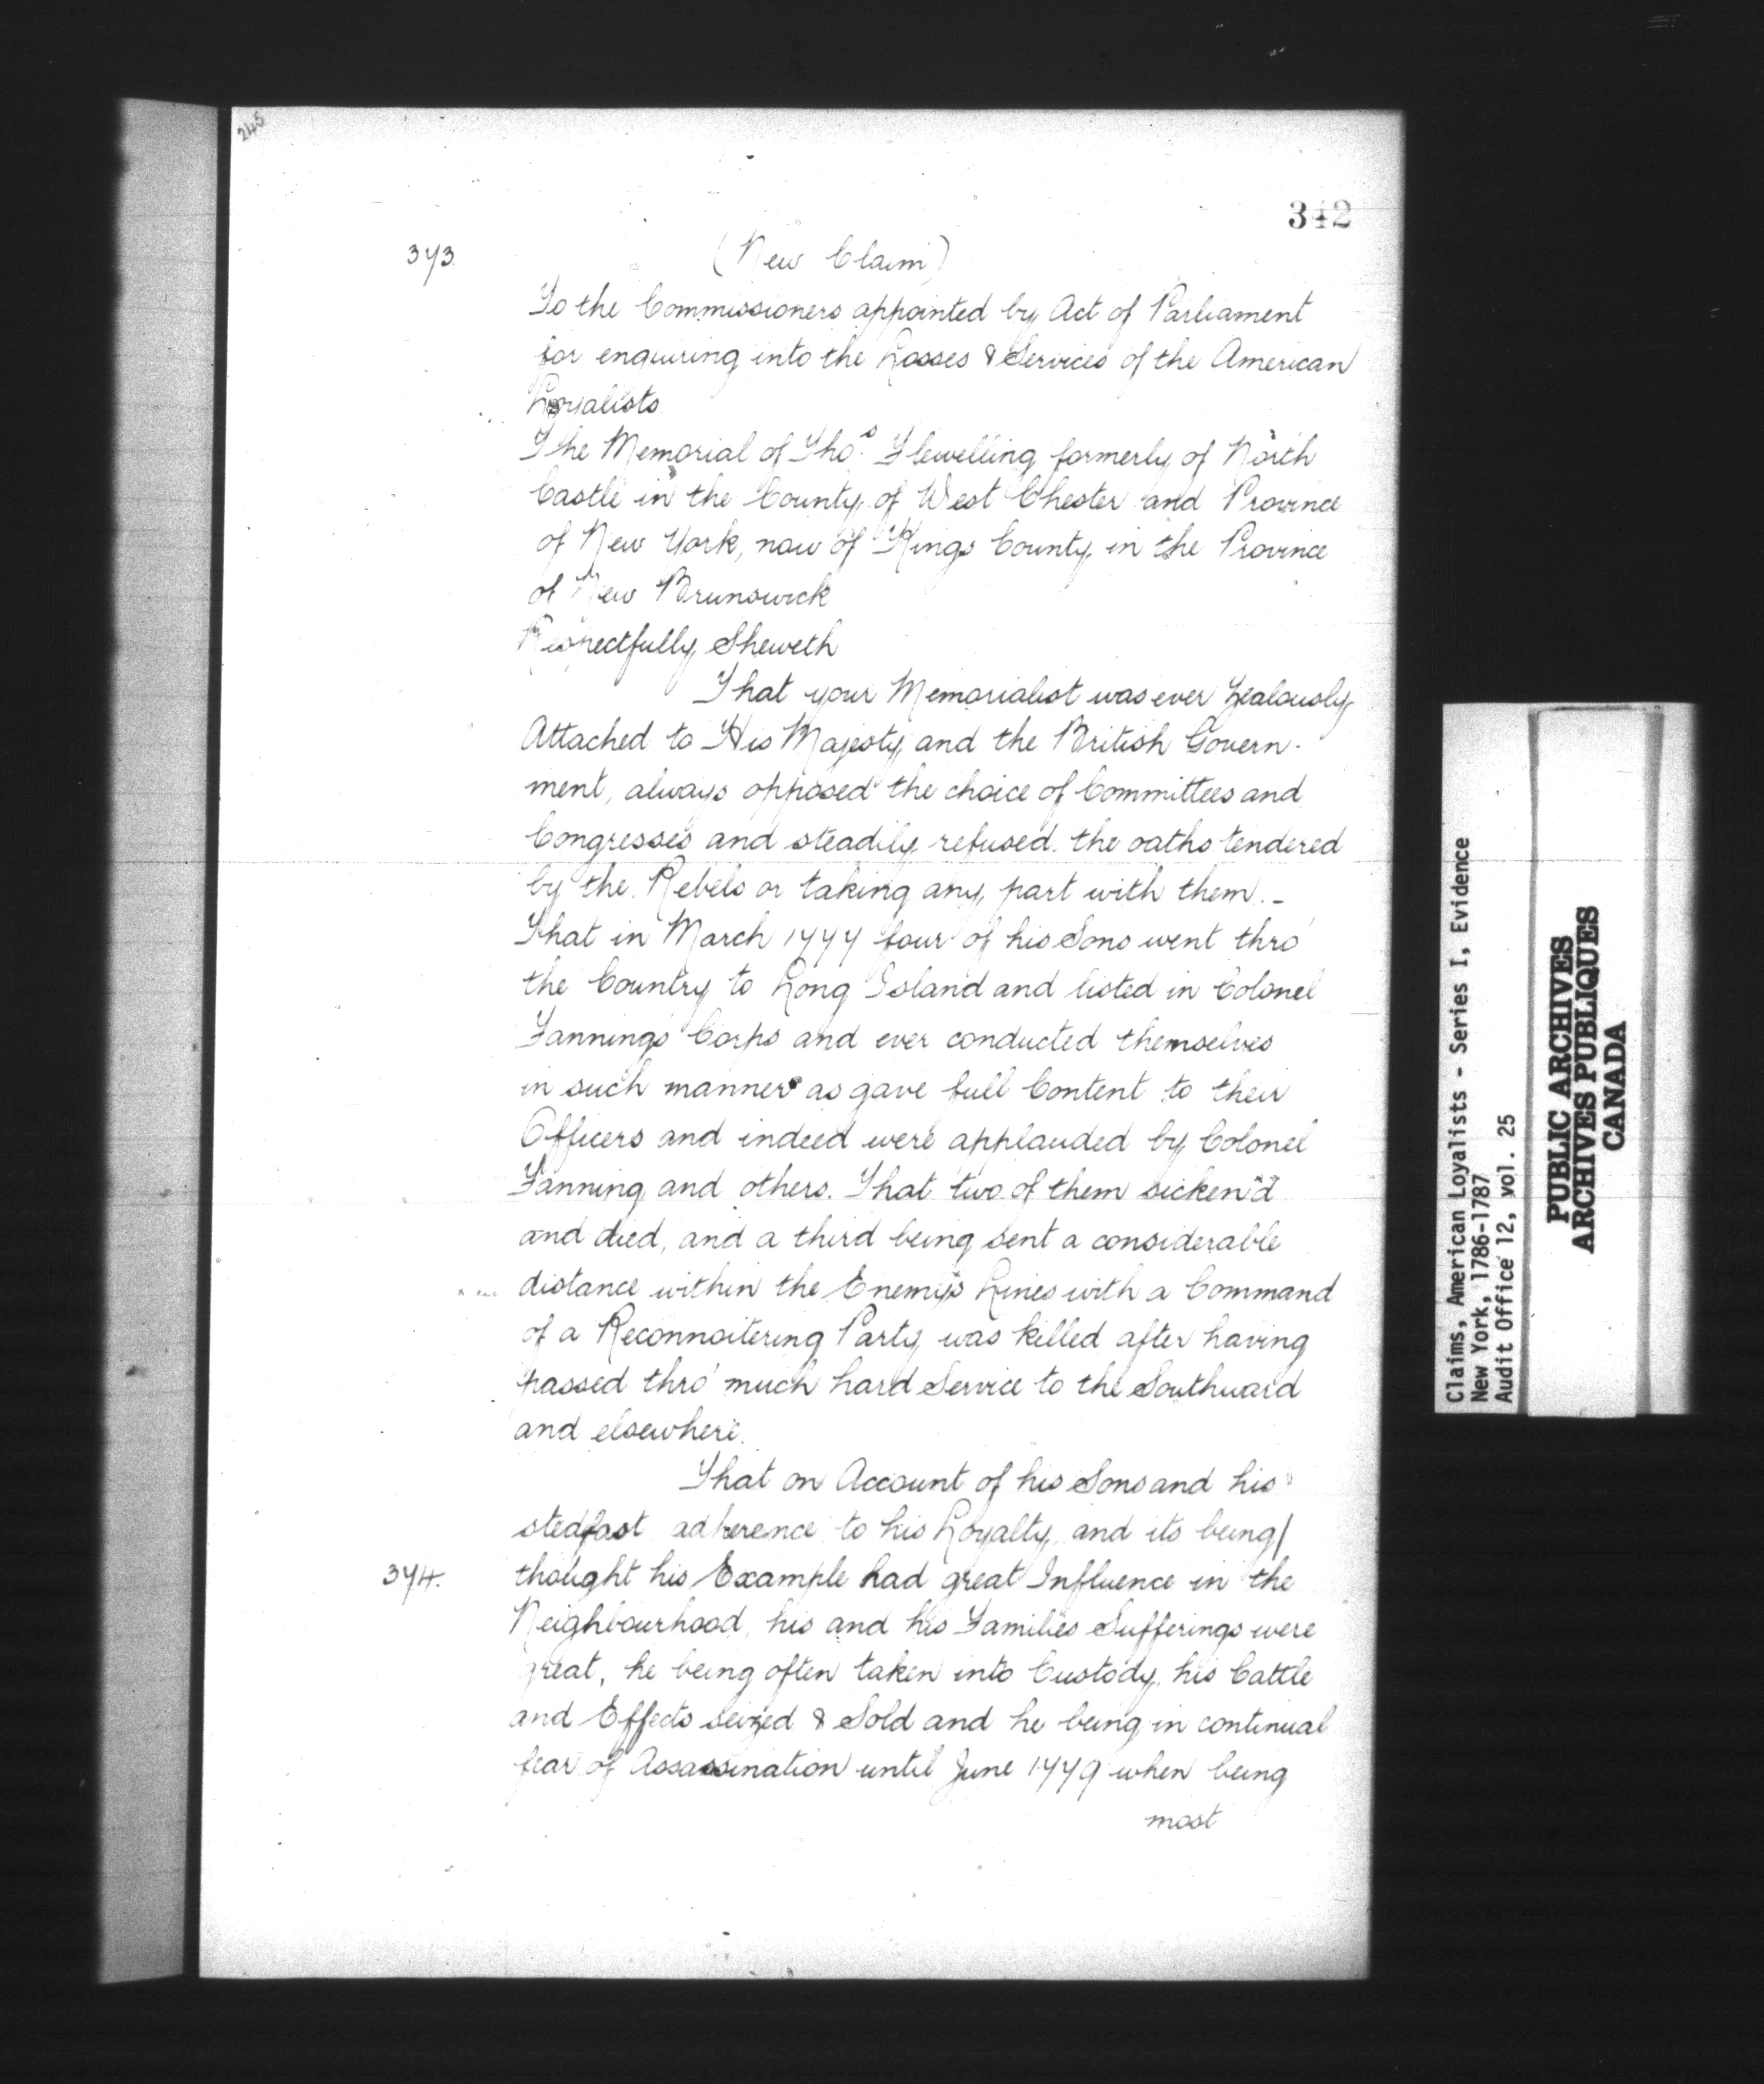 245
342
373
(New Claim)
To the Commissioners appointed by Act of Parliament
for enquiring into the Losses & Services of the American
Loyalists
The Memorial of Tho.s Flewelling formerly of North
Castle in the County of West Chester and Province
of New York, now of Kings County in the Province
of New Brunswick
Respectfully Sheweth
That your Memorialist was ever Zealously
Attached to His Majesty and the British Govern-
ment, always opposed the choice of Committees and
Congresses and steadily refused the oaths tendered
by the Rebels or taking any part with them. -
That in March 1777 four of his Sons went thro'
the Country to Long Island and listed in Colonel
Fannings Corps and ever conducted themselves
in such manner as gave full Content to their
Officers and indeed were applauded by Colonel
Fanning and others. That two of them sicken'd
and died, and a third being sent a considerable
distance within the Enemy's Lines with a Command
of a Reconnoitering Party was killed after having
passed thro' much hard Service to the Southward
and elsewhere.
That on Account of his Sons and his
stedfast adherence to his Loyalty, and its being/
374.
thought his Example had great Influence in the
Neighbourhood, his and his Families Sufferings were
great, he being often taken into Custody, his Cattle
and Effects seized & Sold and he being in continual
fear of Assassination until June 1779 when being
most
Claims, American Loyalists - Series I, Evidence
New York, 1786-1787
Audit Office 12, vol. 25
PUBLIC ARCHIVES
ARCHIVES PUBLIQUES
CANADA